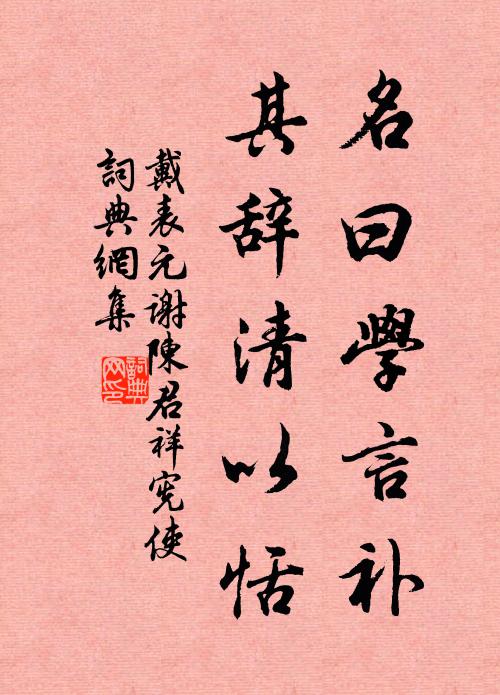 名曰學言补
其辞清以恬
戴表元谢陳君祥宪使
詞典網集
詞典网印